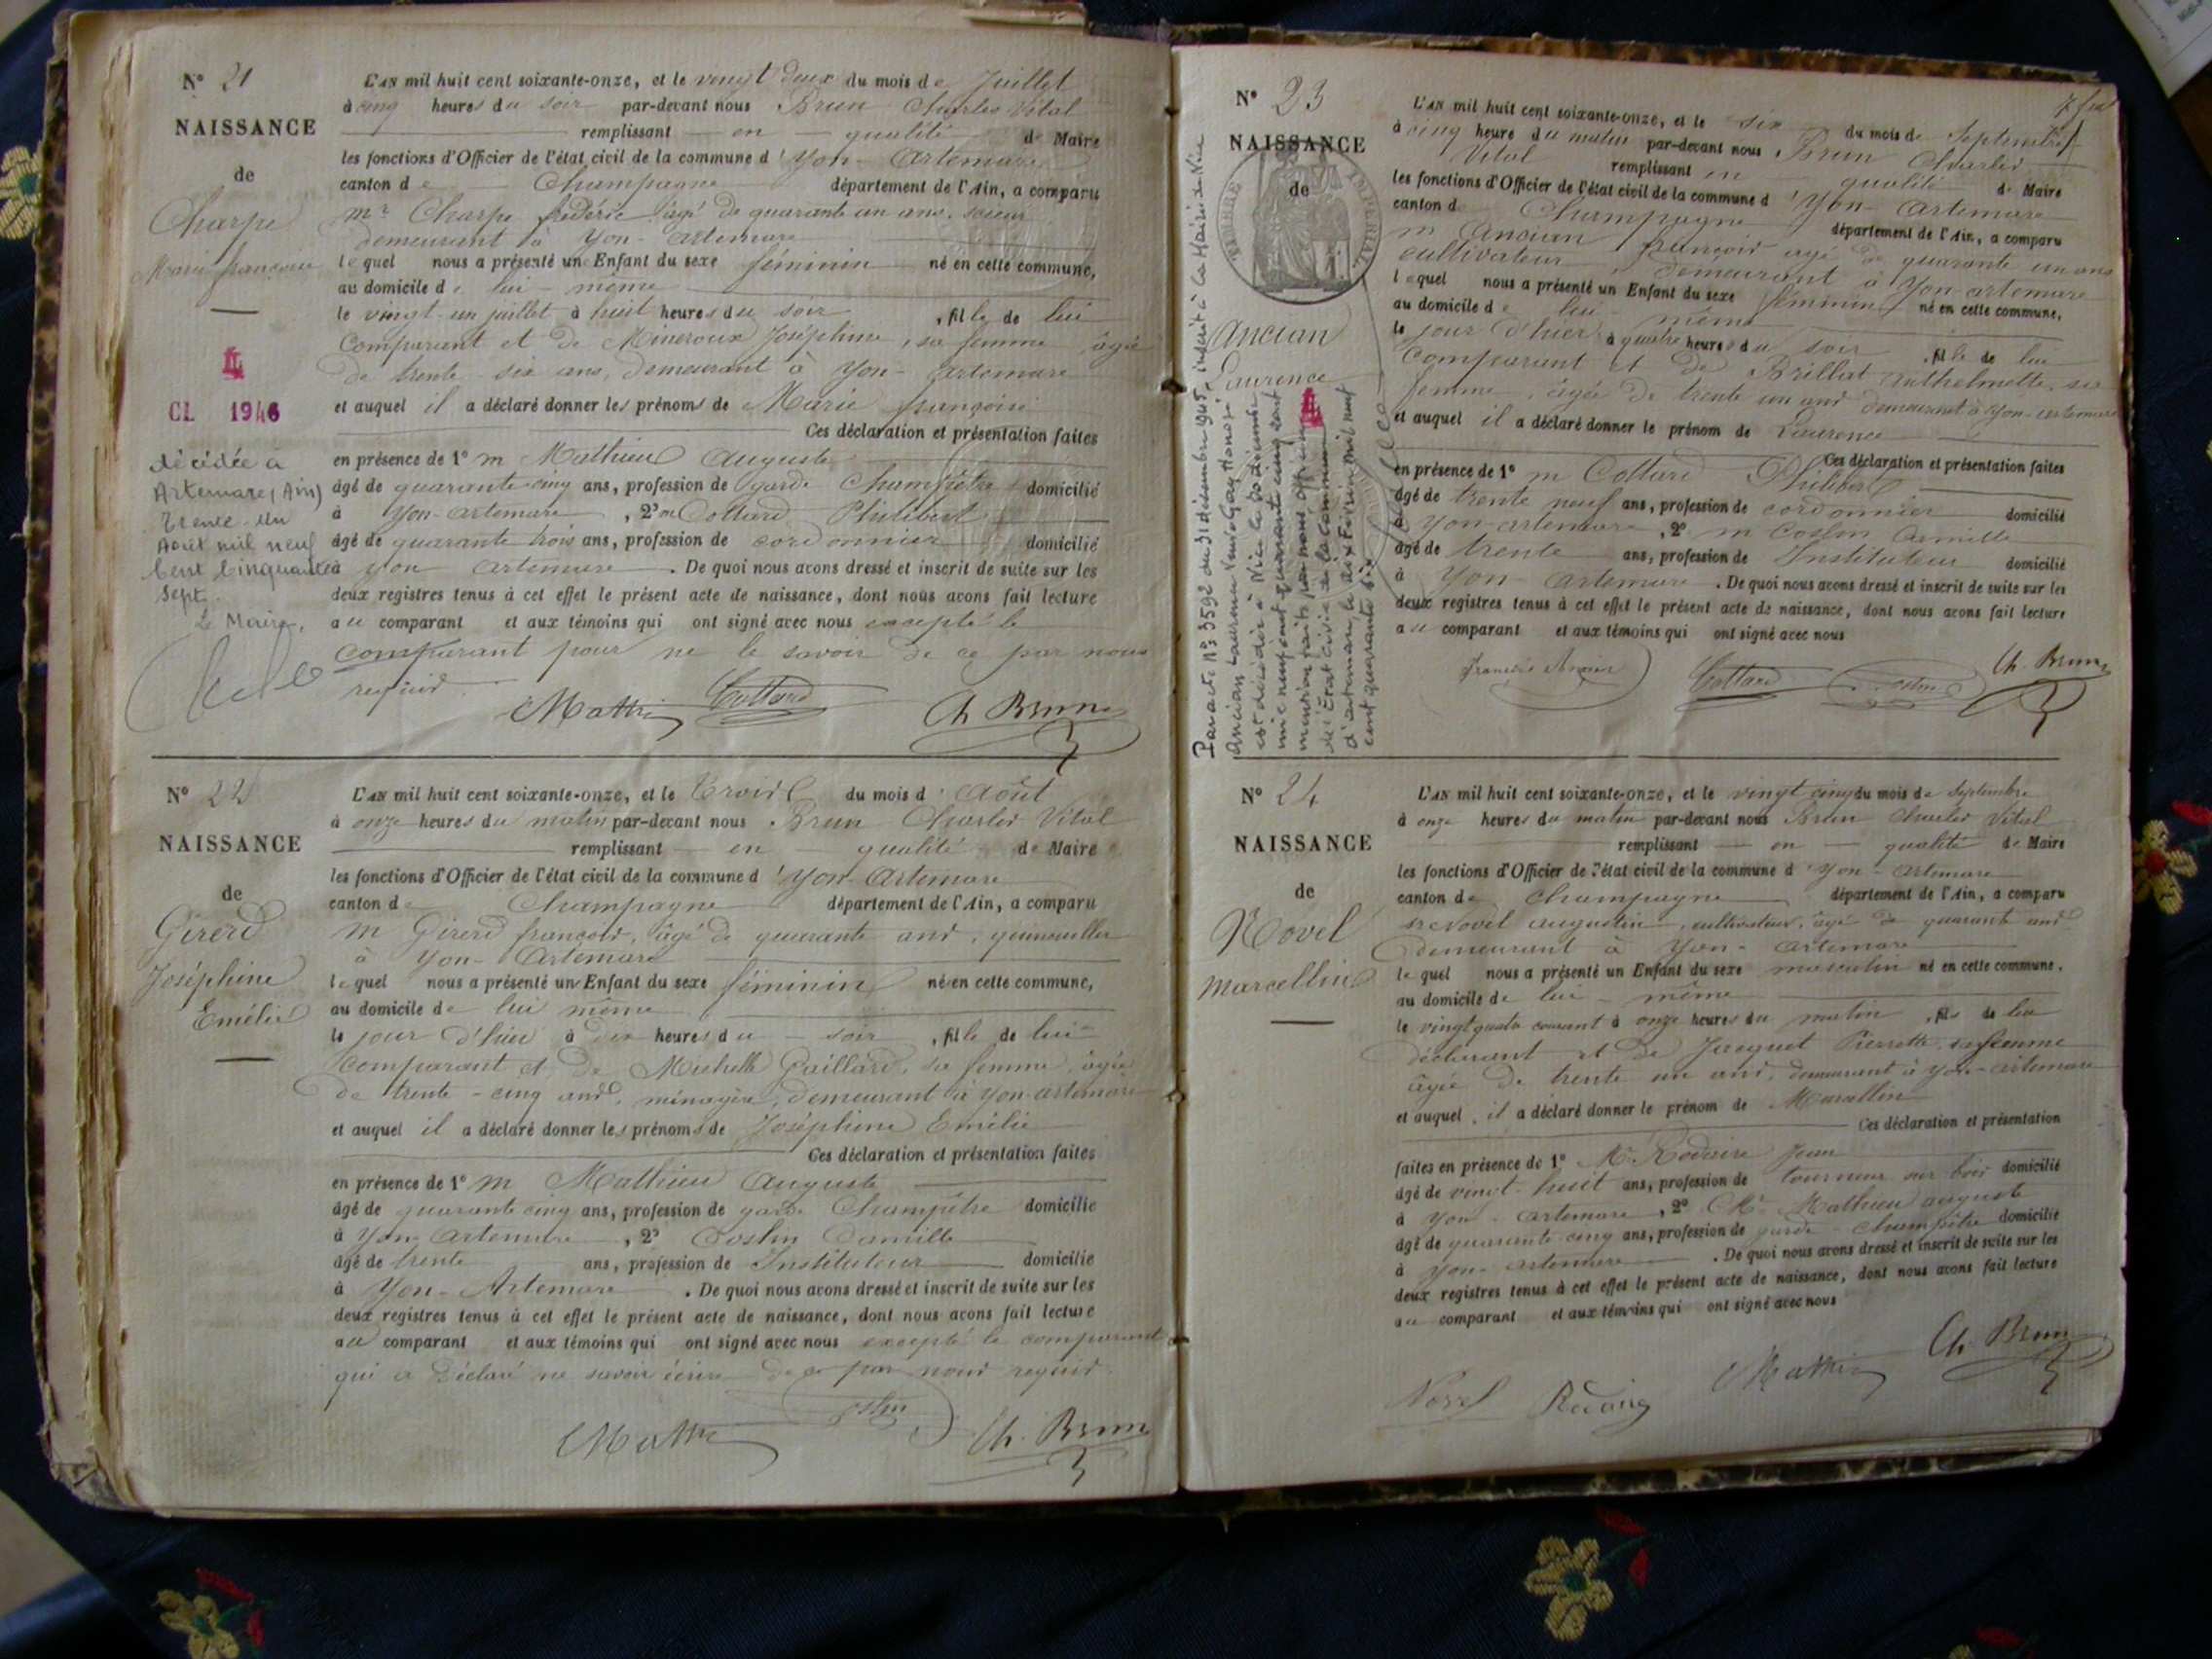 N° 21
NAISSANCE
de
Charpe
Marie françoise
CL 1946
décédée à
Artemare (Ain)
trente-un
Août mil neuf
cent cinquante
sept.
Le Maire,
L'AN mil huit cent soixante-onze, et le vingt deux du mois de Juillet
à cinq heures du soir par-devant nous Brun Charles Vital
remplissant en qualité de Maire
les fonctions d'Officier de l'état civil de la commune d'Yon-Artemare
canton de Champagne département de l'Ain, a comparu
mr Charpe frédéric âgé de quarante un ans,
demeurant à Yon-Artemare
lequel nous a présenté un Enfant du sexe féminin né en cette commune,
au domicile de lui-même
le vingt-un juillet à huit heures du soir, fille de lui
Comparant et de Mineroux Joséphine, sa femme, âgée
de trente-six ans, demeurant à Yon-Artemare
et auquel il a déclaré donner les prénoms de Marie françoise
Ces déclaration et présentation faites
en présence de 1° m Mathieu Auguste
âgé de quarante cinq ans, profession de garde Champêtre domicilié
à Yon-Artemare, 2° m Collard Philibert
âgé de quarante trois ans, profession de cordonnier domicilié
à Yon Artemare. De quoi nous avons dressé et inscrit de suite sur les
deux registres tenus à cet effet le présent acte de naissance, dont nous avons fait lecture
au comparant et aux témoins qui ont signé avec nous excepté le
comparant pour ne le savoir de ce par nous
requis.
Mathieu Collard Ch Brun
N° 22
NAISSANCE
de
Girerd
Joséphine
Emélie
L'AN mil huit cent soixante-onze, et le trois du mois d'Août
à onze heures du matin par-devant nous Brun Charles Vital
remplissant en qualité de Maire
les fonctions d'Officier de l'état civil de la commune d'Yon-Artemare
canton de Champagne département de l'Ain, a comparu
m Girerd françois, âgé de quarante ans,
à Yon-Artemare
lequel nous a présenté un Enfant du sexe féminin né en cette commune,
au domicile de lui même
le jour d'hier à dix heures du soir, fille de lui
comparant et de Michelle Gaillard, sa femme, âgée
de trente-cinq ans, ménagère, demeurant à Yon-artemare
et auquel il a déclaré donner les prénoms de Joséphine Emélie
Ces déclaration et présentation faites
en présence de 1° m Mathieu Auguste
âgé de quarante cinq ans, profession de garde Champêtre domicilié
à Yon-Artemare, 2° Coslin Camille
âgé de trente ans, profession de Instituteur domicilié
à Yon-Artemare. De quoi nous avons dressé et inscrit de suite sur les
deux registres tenus à cet effet le présent acte de naissance, dont nous avons fait lecture
au comparant et aux témoins qui ont signé avec nous excepté le comparant
qui a déclaré ne savoir écrire de ce par nous requis.
Mathieu Coslin Ch. Brun
N° 23
NAISSANCE
de
TIMBRE IMPÉRIAL
Ancian
Laurence
Par acte n° 3592 du 31 décembre 1945, inscrit à la Mairie de Nice
Ancian Laurence
est décédée à Nice le
mil neuf cent quarante cinq dont
mention faite par nous, officier
de l'État civil de la commune
d'artemare, le dix Février mil neuf
cent quarante six
L'AN mil huit cent soixante-onze, et le six du mois de Septembre
à cinq heure du matin par-devant nous Brun Charles
Vital remplissant en qualité de Maire
les fonctions d'Officier de l'état civil de la commune d'Yon-Artemare
canton de Champagne département de l'Ain, a comparu
m Ancian françois âgé de quarante un ans
cultivateur demeurant à Yon-artemare
lequel nous a présenté un Enfant du sexe féminin né en cette commune,
au domicile de lui-même
le jour d'hier à quatre heures du soir, fille de lui
Comparant et de Brillat Anthelmette, sa
femme, âgée de trente un ans demeurant à Yon-artemare
et auquel il a déclaré donner le prénom de Laurence
Ces déclaration et présentation faites
en présence de 1° m Collard Philibert
âgé de trente neuf ans, profession de cordonnier domicilié
à Yon-artemare, 2° m Coslin Camille
âgé de trente ans, profession de Instituteur domicilié
à Yon-Artemare. De quoi nous avons dressé et inscrit de suite sur les
deux registres tenus à cet effet le présent acte de naissance, dont nous avons fait lecture
au comparant et aux témoins qui ont signé avec nous
françois Ancian Collard Coslin Ch. Brun
N° 24
NAISSANCE
de
Novel
Marcellin
L'AN mil huit cent soixante-onze, et le vingt cinq du mois de Septembre
à onze heures du matin par-devant nous Brun Charles Vital
remplissant en qualité de Maire
les fonctions d'Officier de l'état civil de la commune d'Yon-Artemare
canton de Champagne département de l'Ain, a comparu
sr Novel augustin, cultivateur, âgé de quarante ans
demeurant à Yon-Artemare
lequel nous a présenté un Enfant du sexe masculin né en cette commune,
au domicile de lui-même
le vingt quatre courant à onze heures du matin, fils de lui
déclarant et de Jacquet Pierrette, sa femme
âgée de trente un ans, demeurant à Yon-artemare
et auquel il a déclaré donner le prénom de Marcellin
Ces déclaration et présentation
faites en présence de 1° Mr Rodaire Jean
âgé de vingt-huit ans, profession de tourneur sur bois domicilié
à Yon-Artemare, 2° Mr Mathieu auguste
âgé de quarante cinq ans, profession de garde-champêtre domicilié
à Yon-artemare. De quoi nous avons dressé et inscrit de suite sur les
deux registres tenus à cet effet le présent acte de naissance, dont nous avons fait lecture
au comparant et aux témoins qui ont signé avec nous
Novel Rodaire Mathieu Ch. Brun